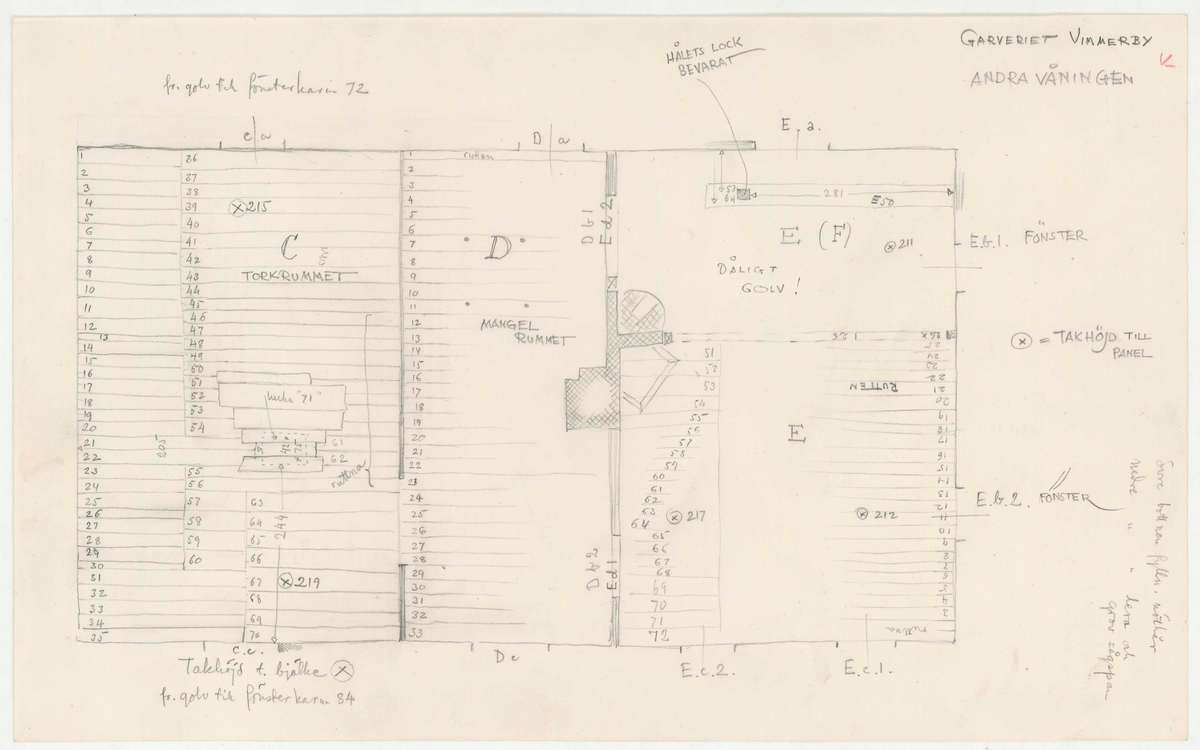 GARVERIET VIMMERBY
ANDRA VÅNINGEN
HÅLETS LOCK
BEVARAT
fr. golv till fönsterkarm 72
C a
D a
E. a.
1
2
3
4
5
6
7
8
9
10
11
12
13
14
15
16
17
18
19
20
21
22
23
24
25
26
27
28
29
30
31
32
33
34
35
36
37
38
39
40
41
42
43
44
45
46
47
48
49
50
51
52
53
54
55
56
57
58
59
60
61
62
63
64
65
66
67
68
69
70
215
C
TORKRUMMET
lucka "71"
205
244
219
ruttna
1
2
3
4
5
6
7
8
9
10
11
12
13
14
15
16
17
18
19
20
21
22
23
24
25
26
27
28
29
30
31
32
33
rutten
D
MANGEL
RUMMET
D b 1
E d 2
D b 2
E d 1
281
E50
E (F)
211
DÅLIGT
GOLV!
E.b.1. FÖNSTER
= TAKHÖJD TILL
PANEL
51
52
53
54
55
56
57
58
59
60
61
62
63
64
65
66
67
68
69
70
71
72
25
24
23
22
21
20
19
18
17
16
15
14
13
12
11
10
9
8
7
6
5
4
3
RUTTEN
E
217
212
ruttna
E.b.2. FÖNSTER
C.c.
D c
E.c.2.
E.c.1.
Takhöjd t. bjälke
fr. golv till fönsterkarm 84
övre bottnen fylln. nöthår
nedre " " lera och
grov sågspån